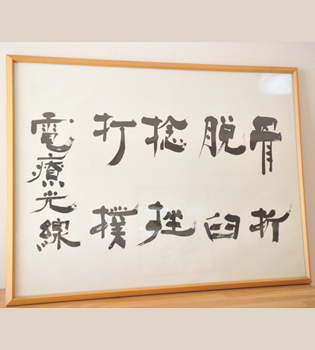 骨折
脱臼
捻挫
打撲
電療光線